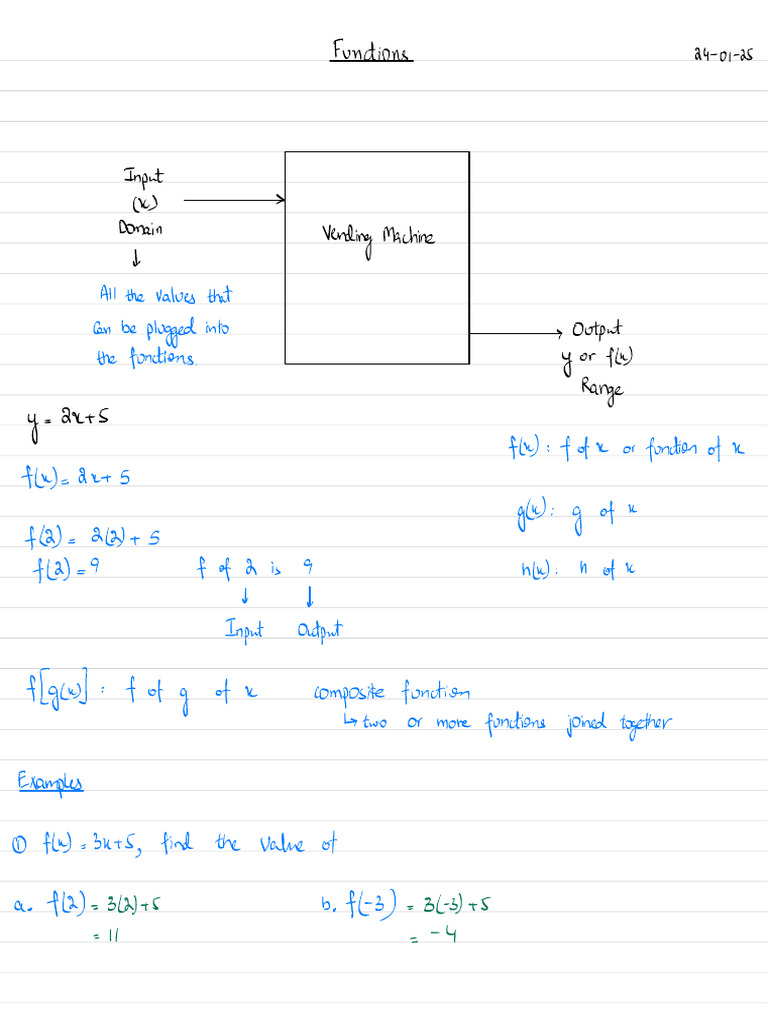 Functions
24-01-25
Input
(x)
Domain
↓
All the values that
can be plugged into
the functions.
Vending Machine
Output
y or f(x)
Range
y = 2x+5
f(x) = 2x+5
f(2) = 2(2)+5
f(2) = 9
f of 2 is 9
↓ ↓
Input Output
f(x): f of x or function of x
g(x): g of x
h(x): h of x
f[g(x)]: f of g of x composite function
↳ two or more functions joined together
Examples
① f(x) = 3x+5, find the value of
a. f(2) = 3(2)+5
= 11
b. f(-3) = 3(-3)+5
= -4